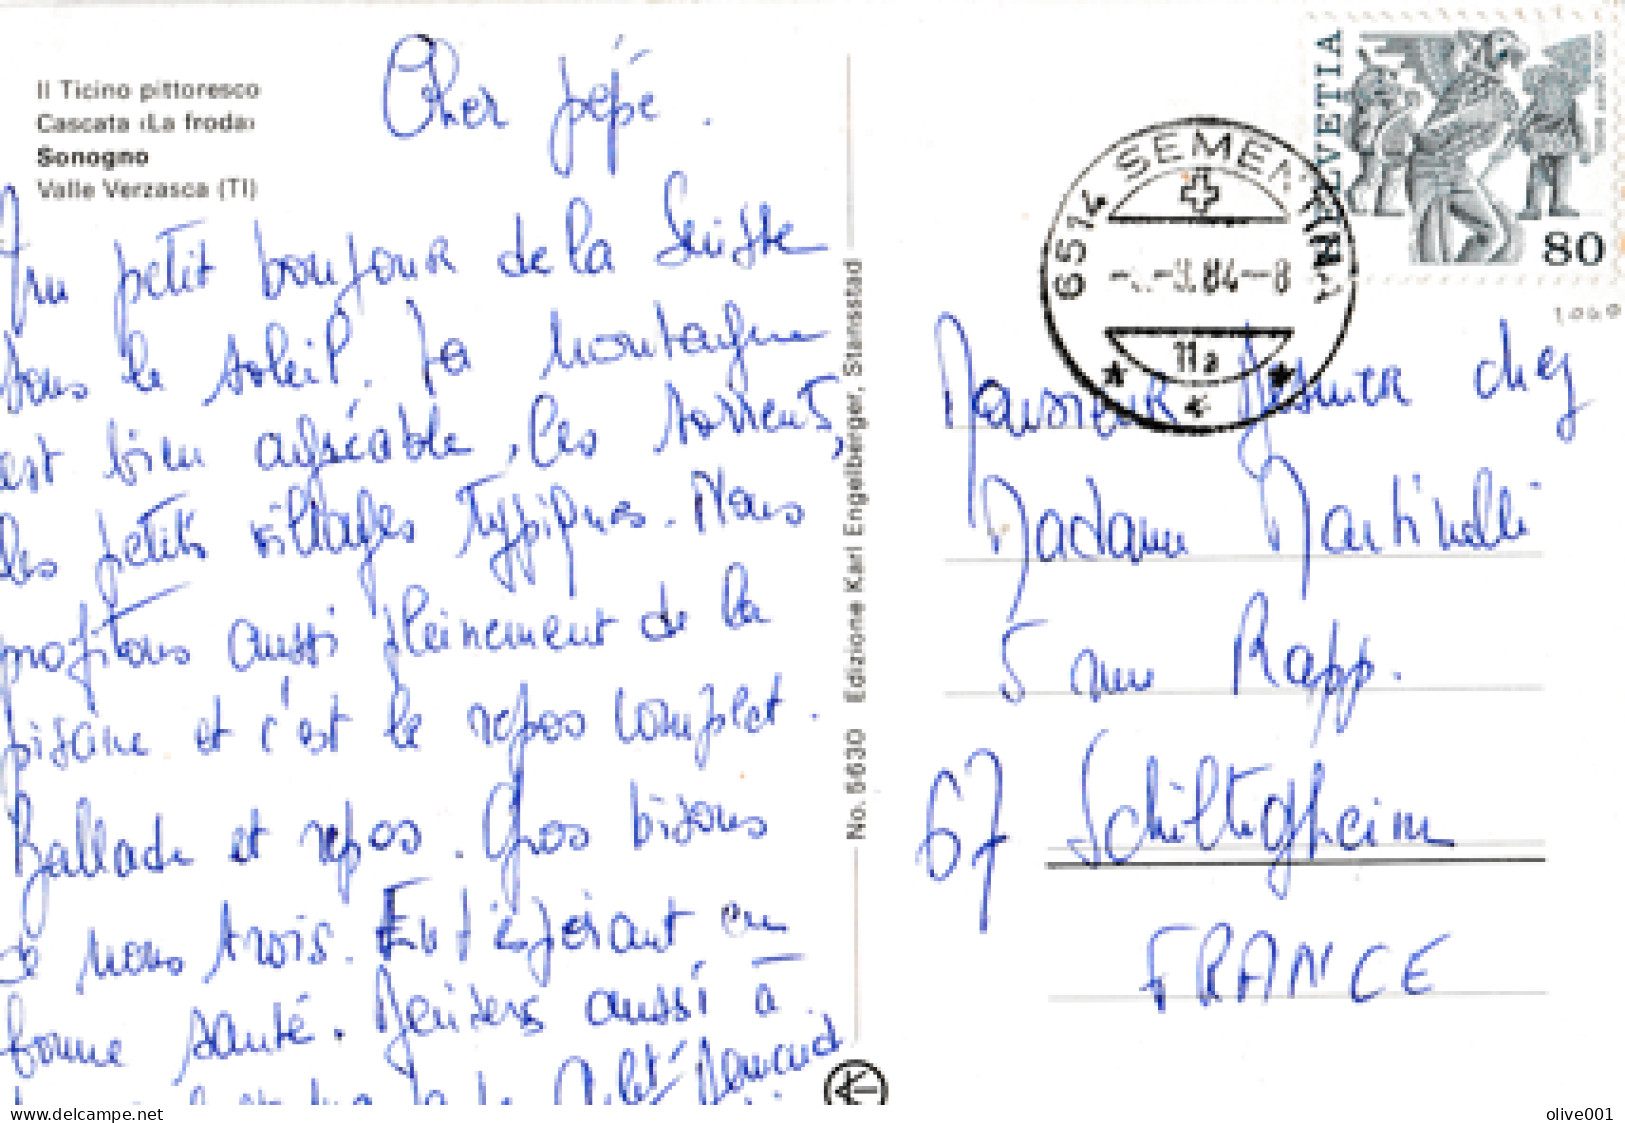 Il Ticino pittoresco
Cascata ‹La froda›
Sonogno
Valle Verzasca (TI)
Cher pépé.
Un petit bonjour de la Suisse
sous le soleil. La montagne
est bien agréable, les torrents,
les petits villages typiques. Nous
profitons aussi pleinement de la
piscine et c'est le repos complet.
Ballade et repos. Gros bisous
de nous trois. En t'espérant en
bonne santé. Bernard
aussi à
No. 5630 Edizione Karl Engelberger, Stansstad
HELVETIA
80
6514 SEMENTINA
84-8
11a
Monsieur chez
Madame Martinelli
5 rue Rapp.
67 Schiltigheim
FRANCE
www.delcampe.net
olive001